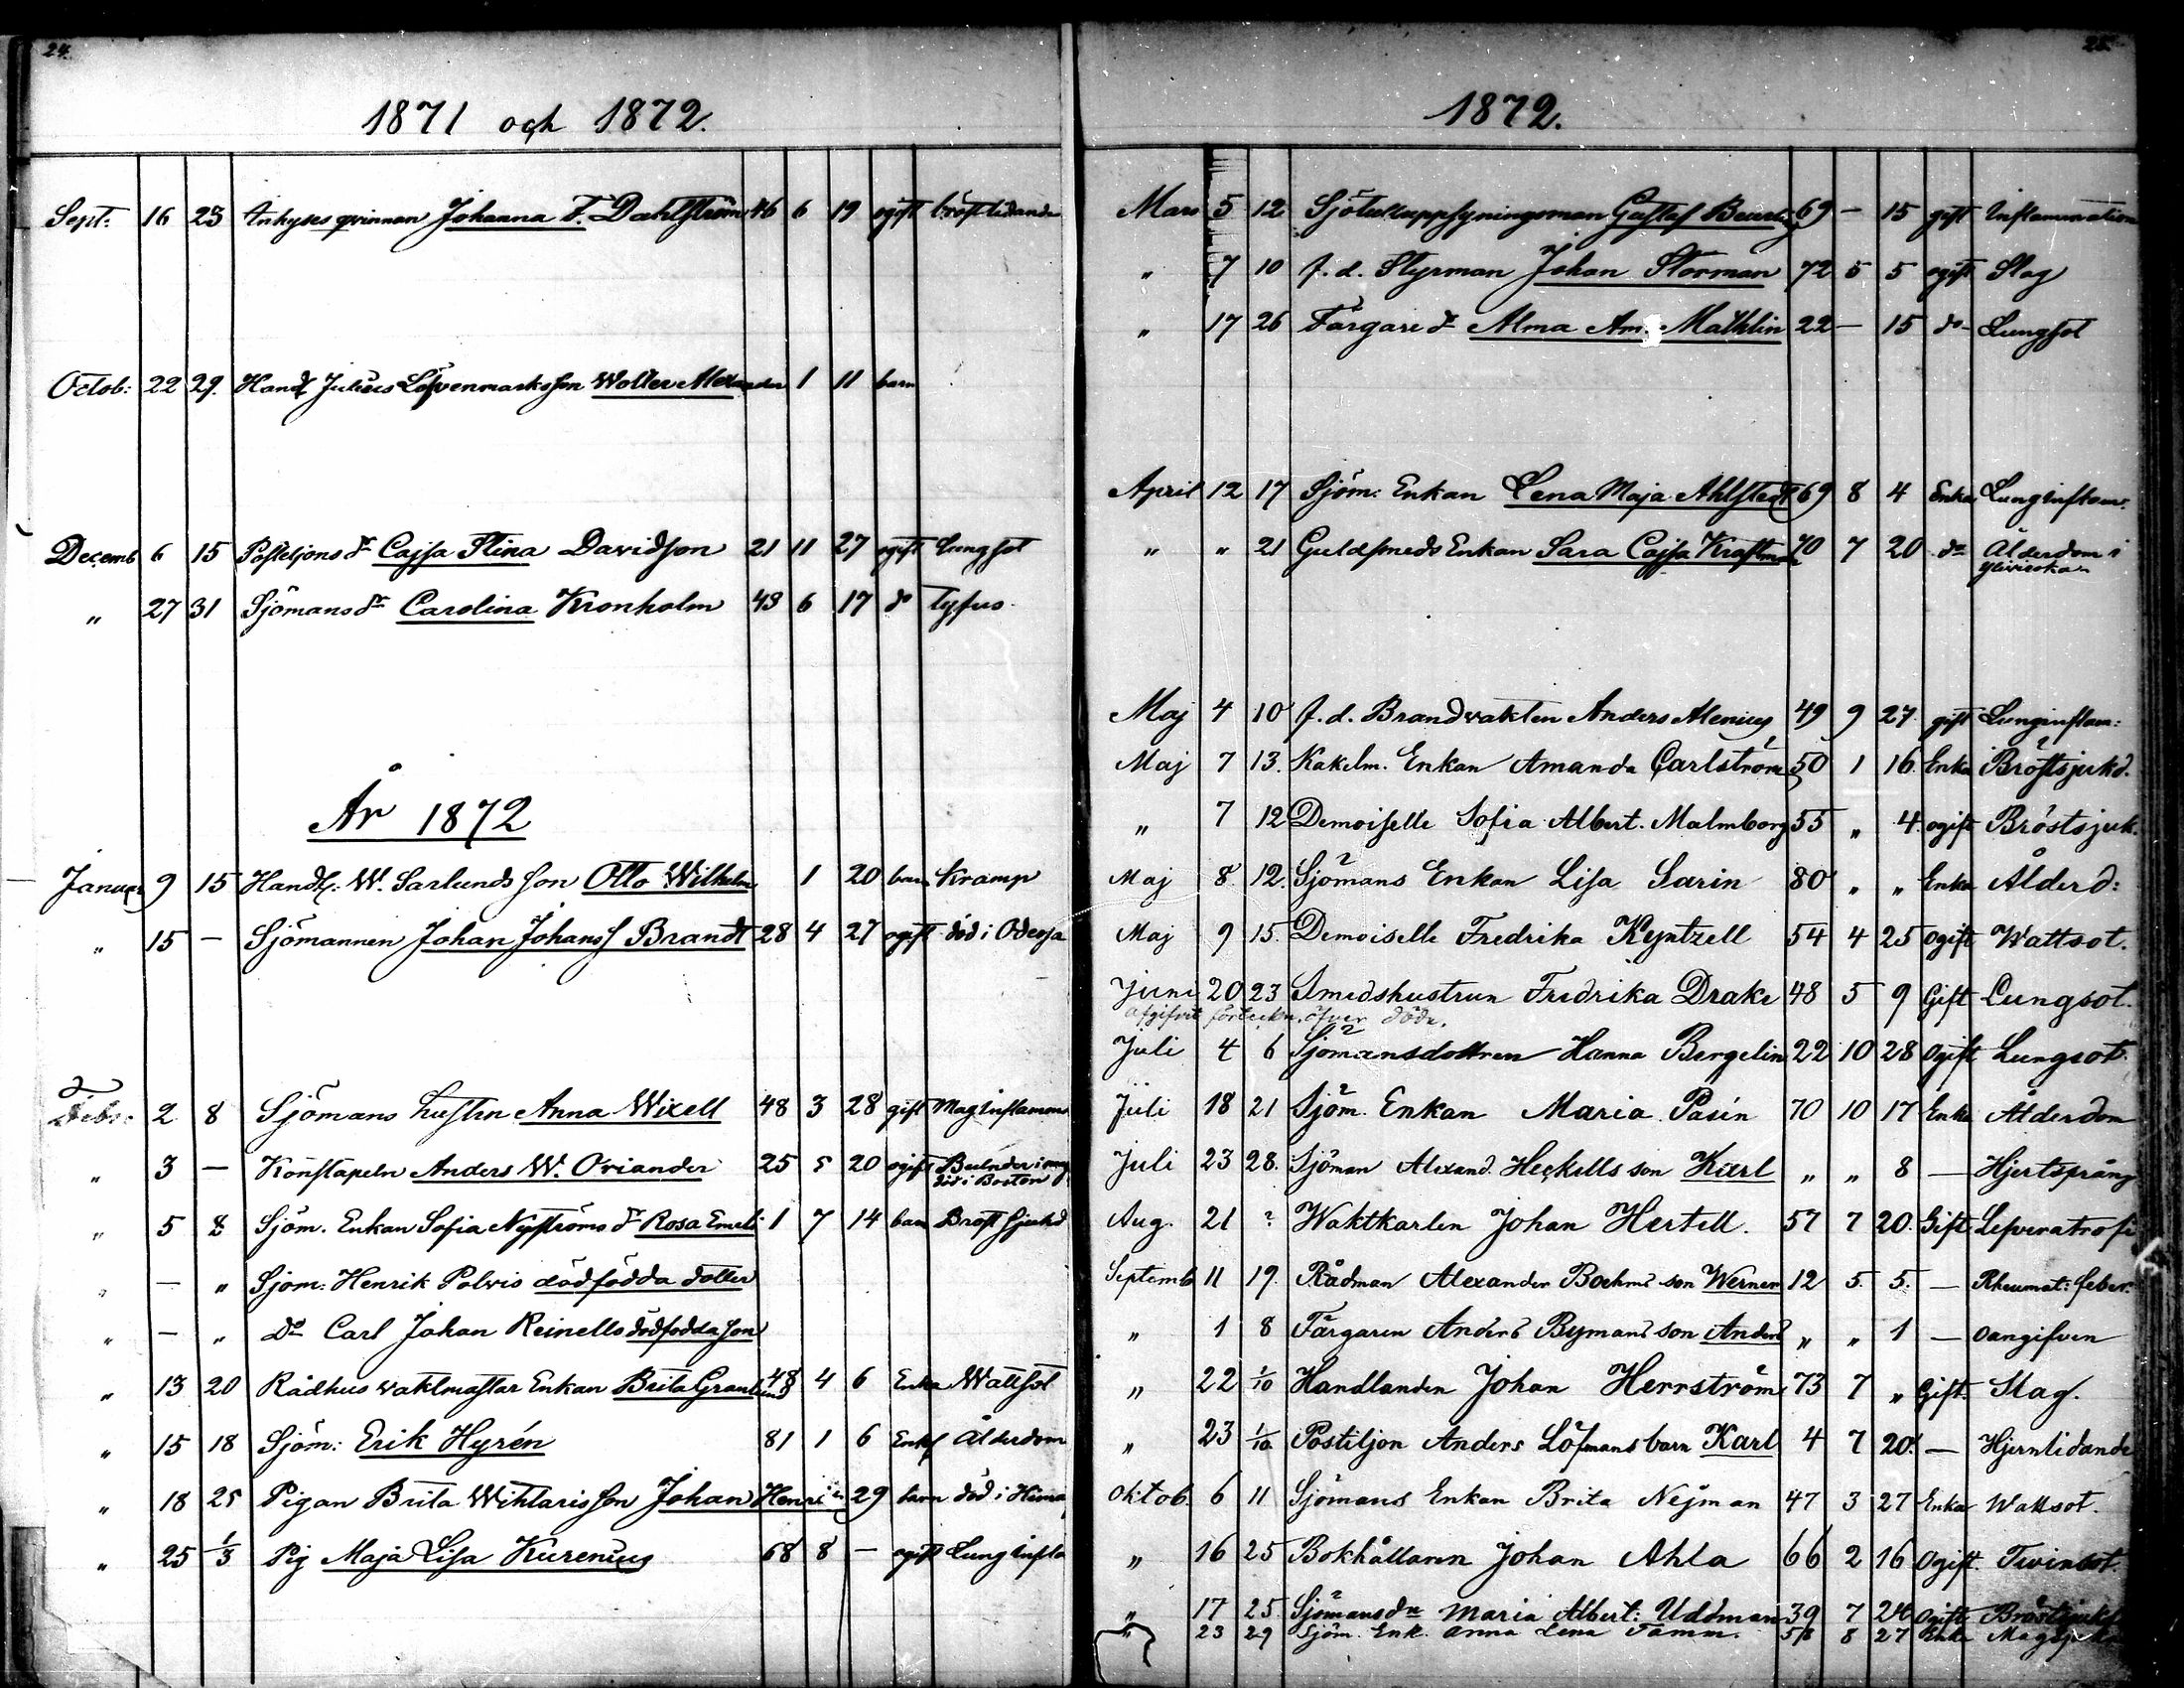 24.
1871 och 1872.
Sept: 16 23 Inhyses qvinnan Johanna F. Dahlström 46 6 19 ogift bröstlidande
Octob: 22 29. Handl Julius Löfvenmarks son Wolter Alexander 1 11 barn
Decemb 6 15 Postiljons dr Cajsa Stina Davidson 21 11 27 ogift Lungsot
" 27 31 Sjömans dr Carolina Kronholm 43 6 17 do Tyfus.
År 1872
Januari 9 15 Handl: W. Sarlunds son Otto Wilhelm 1 20 barn Kramp
" 15 – Sjömannen Johan Johans Brandt 28 4 27 ogift död i Odessa
Febr: 2 8 Sjömans hustru Anna Wixell 48 3 28 gift Maginflamma
" 3 – Konstapeln Anders W. Oriander 25 5 20 ogift
död i Boston
" 5 8 Sjöm. Enkan Sofia Nyströms dr Rosa Emeli 1 7 14 barn Bröstsjukd
" – " Sjöm: Henrik Polvis dödfödda dotter
" – " Do Carl Johan Reinells dödfödda son
" 13 20 Rådhus vaktmästar Enkan Brita Granlund 48 4 6 Enka Wattsot
" 15 18 Sjöm: Erik Hyrén 81 1 6 Enkl Ålderdom
" 18 25 Pigan Brita Wihlaris son Johan Henrik 29 barn död i Hima
" 25 1/3 Pig Maja Lisa Kurenius 68 8 – ogift Lunginfla
25.
1872.
Mars 5 12 Sjötulluppsyningsman Gustaf Beurling 69 – 15 gift Inflammation
" 7 10 f.d. Styrman Johan Storman 72 5 5 ogift Slag
" 17 26 Färgare dr Alma Am. Mathlin 22 – 15 do Lungsot
April 12 17 Sjöm: Enkan Lena Maja Ahlstedt 69 8 4 Enka Lunginflam.
" " 21 Guldsmeds Enkan Sara Cajsa Kraftman 70 7 20 do Ålderdom i
Ylivieska
Maj 4 10 f.d. Brandvakten Anders Alenius 49 9 27. gift Lunginflam:
Maj 7 13. Kakelm. Enkan Amanda Carlström 50 1 16. Enka Bröstsjukd.
" 7 12 Demoiselle Sofia Albert. Malmborg 55 " 4. ogift Bröstsjuk.
Maj 8. 12. Sjömans Enkan Lisa Sarin 80 " " Enka Ålderd:
Maj 9 15. Demoiselle Fredrika Kyntzell 54 4 25 Ogift Wattsot.
Juni 20 23 Smedshustrun Fredrika Drake 48 5 9 Gift Lungsot.
afgifvit förteckn. öfver döde.
Juli 4 6 Sjömansdottren Hanna Bergelin 22 10 28 Ogift Lungsot.
Juli 18 21 Sjöm. Enkan Maria Pasén 70 10 17 Enka Ålderdom
Juli 23 28. Sjöman Alexand. Heckells son Karl " " 8 – Hjertsprång
Aug. 21 ? Waktkarlen Johan Hertell. 57 7 20. Gift Lefveratrofi
Septemb 11 19. Rådman Alexander Boehms son Werner 12 5. 5. – Rheumat: feber.
" 1 8 Färgaren Anders Bymans son Anders " " 1 – Oangifven
" 22 1/10 Handlanden Johan Herrström 73 7 " Gift. Slag.
" 23 1/10 Postiljon Anders Löfmans barn Karl 4 7 20. – Hjernlidande
Oktob 6 11 Sjömans Enkan Brita Nejman 47 3 27 Enka Wattsot.
" 16 25 Bokhållaren Johan Ahla 66 2 16 Ogift. Tvinsot.
" 17 25. Sjömans dr Maria Albert: Uddman 39 7 24 Ogift Bröstsjukd
" 23 29 Sjöm. Enk. Anna Lena Tamm. 58 8 27 Enka Magsjuk